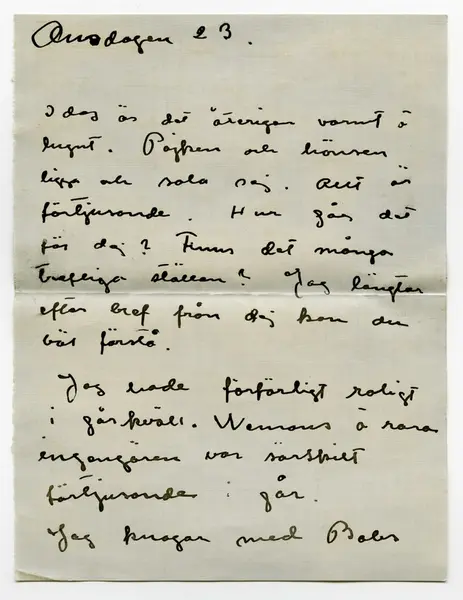 Onsdagen 23.
I dag är det återigen varmt o
lugnt. Pojken och hönsen
ligga och sola sig. Allt är
förtjusande. Hur går det
för dig? Finns det många
trefliga ställen? Jag längtar
efter bref från dig kan du
väl förstå.
Jag hade förfärligt roligt
i går kväll. o rara
var särskilt
förtjusande i går.
Jag knogar med